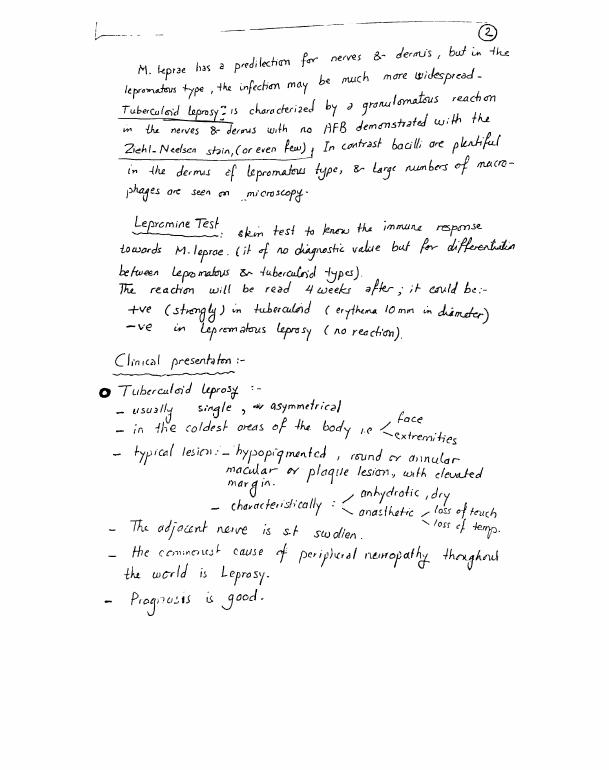 2
M. leprae has a predilection for nerves & dermis, but in the
lepromatous type, the infection may be much more widespread.
Tuberculoid leprosy: is characterized by a granulomatous reaction
in the nerves & dermis with no AFB demonstrated with the
Ziehl-Neelsen stain, (or even few), In contrast bacilli are plentiful
in the dermis of lepromatous type, & large numbers of macro-
phages are seen on microscopy.
Lepromine Test: skin test to know the immune response
towards M. leprae. (it of no diagnostic value but for differentiation
between lepromatous & tuberculoid types).
The reaction will be read 4 weeks after; it could be:-
+ve (strongly) in tuberculoid (erythema 10 mm in diameter)
-ve in lepromatous leprosy (no reaction).
Clinical presentation:-
Tuberculoid leprosy :-
- usually single, asymmetrical
- in the coldest areas of the body i.e < face
extremities
- typical lesion:- hypopigmented, round or annular
macular or plaque lesion, with elevated
margin.
- characteristically : < anhydrotic, dry
anasthetic < loss of touch
loss of temp.
- The adjacent nerve is s.t swollen.
- the commonest cause of peripheral neuropathy thoughout
the world is Leprosy.
- Prognosis is good.